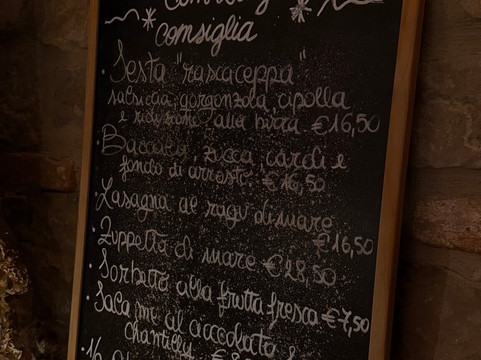 consiglia
Testa "rascaceppa"
salsiccia, gorgonzola, cipolla
e riduzione alla birra €16,50
· Baccalà, zucca, cardi e
fondo di arrosto €16,50
· Lasagna al ragù di mare
€16,50
· Zuppetta di mare €28,50
· Sorbetto alla frutta fresca €7,50
· Salame al cioccolato e
Chantilly €